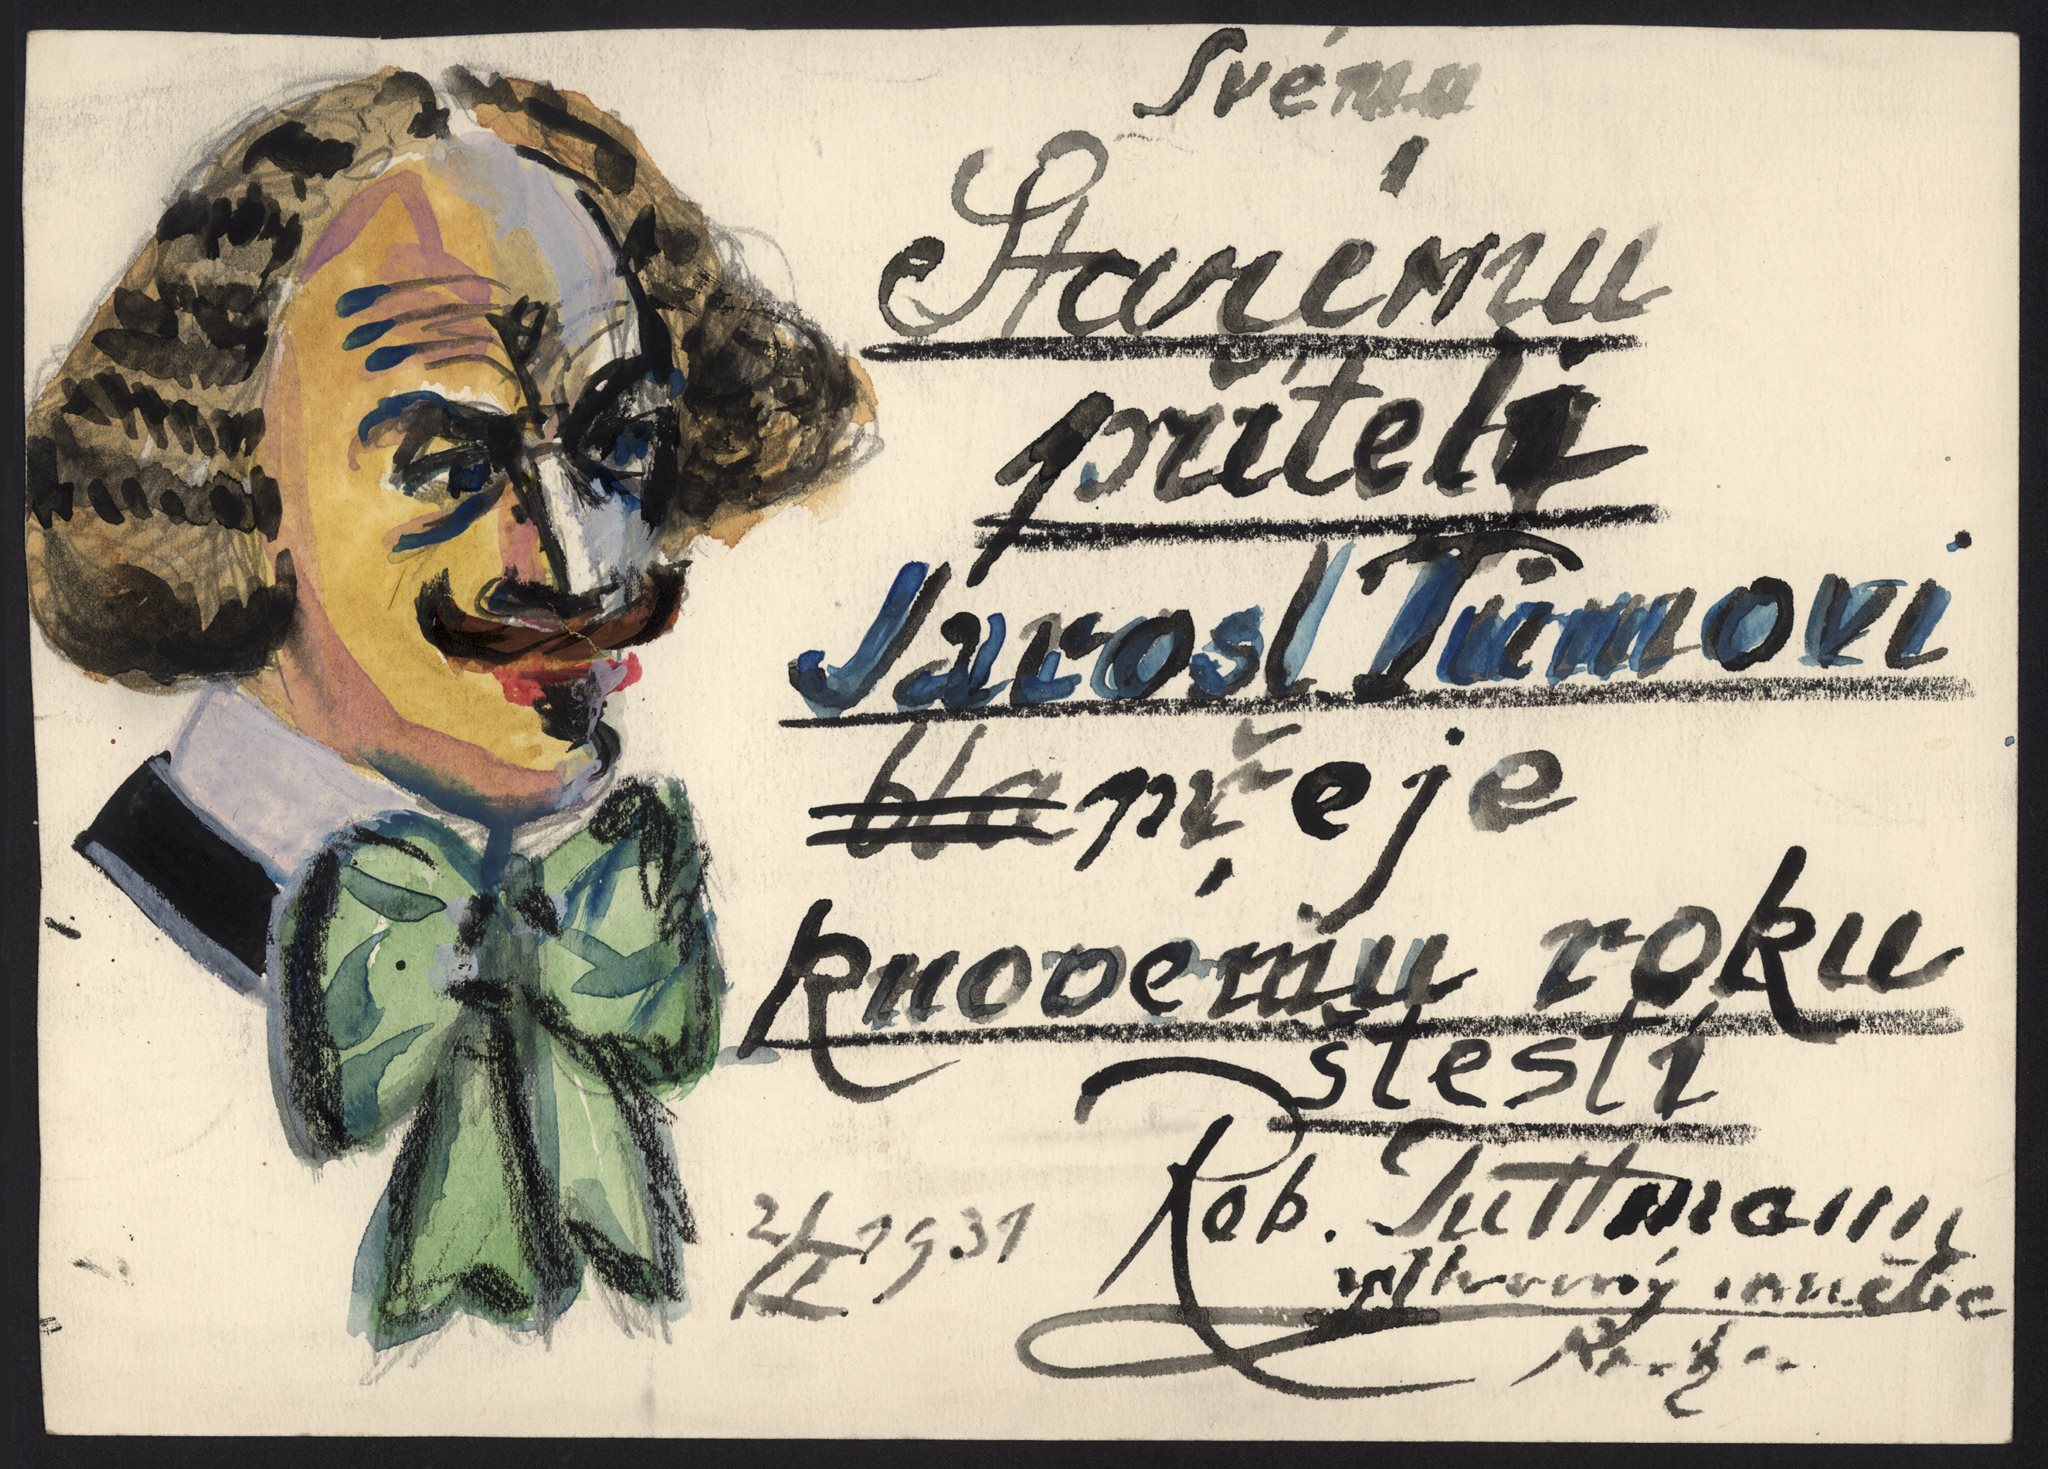 Svému
Starému
příteli
Jarosl Tůmovi
bla přeje
k novému roku
štestí
Rob. Tuttmann
2/I 1931
výtvarný umělec
Praha